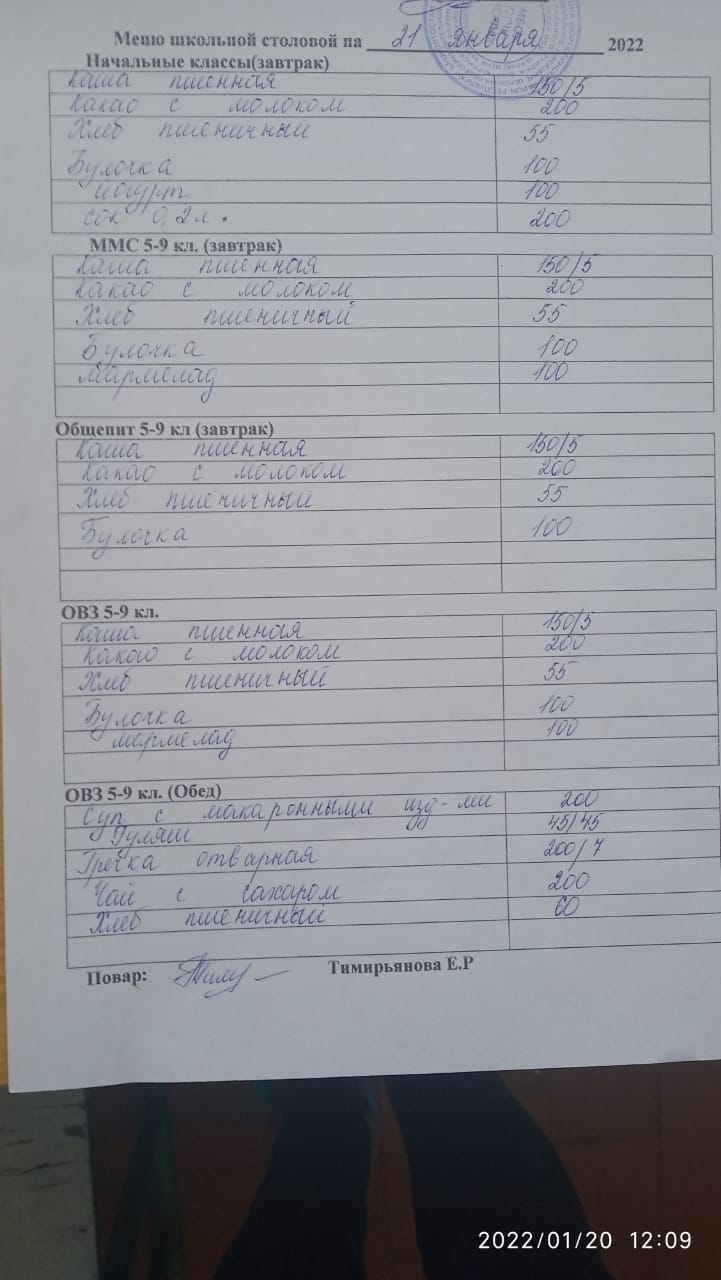 Меню школьной столовой на 21 января 2022
Начальные классы(завтрак)
Каша пшенная 150/5
Какао с молоком 200
Хлеб пшеничный 55
Булочка 100
йогурт 100
сок 0,2л. 200
ММС 5-9 кл. (завтрак)
Каша пшенная 150/5
Какао с молоком 200
Хлеб пшеничный 55
Булочка 100
мармелад 100
Общепит 5-9 кл (завтрак)
Каша пшенная 150/5
Какао с молоком 200
Хлеб пшеничный 55
Булочка 100
ОВЗ 5-9 кл.
Каша пшенная 150/5
Какао с молоком 200
Хлеб пшеничный 55
Булочка 100
мармелад 100
ОВЗ 5-9 кл. (Обед)
Суп с макаронными изд-ми 200
Гуляш 45/45
Гречка отварная 200/7
Чай с сахаром 200
Хлеб пшеничный 60
Повар: Тимирьянова Е.Р
2022/01/20 12:09